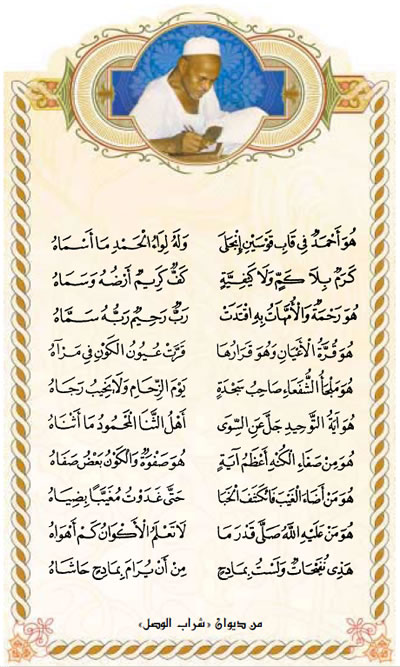 هُوَ أَحْمَدٌ فِي قَابِ قَوْسَيْنِ إِنْجَلَى وَلَهُ لِوَاءُ الْحَمْدِ مَا أَسْمَاهُ
كَرَمٌ بِلَا كَمٍّ وَلَا كَيْفِيَّةٍ كَفٌّ كَرِيمٌ أَرْضُهُ وَسَمَاهُ
هُوَ رَحْمَةٌ وَالْأُمَّهَاتُ بِهِ اقْتَدَتْ رَبٌّ رَحِيمٌ رَبُّهُ سَمَّاهُ
هُوَ قُرَّةُ الْأَعْيَانِ وَهْوَ قَرَارُهَا قَرَّتْ عُيُونُ الْكَوْنِ فِي مَرْآهُ
هُوَ مَلْجَأُ الشُّفَعَاءِ صَاحِبُ سَجْدَةٍ يَوْمَ الزِّحَامِ وَلَا يَخِيبُ رَجَاهُ
هُوَ آيَةُ التَّوْحِيدِ جَلَّ عَنِ السِّوَى أَهْلُ الثَّنَا الْمَحْمُودُ مَا أَثْنَاهُ
هُوَ مِنْ صَفَاءِ الْكُنْهِ أَعْظَمُ آيَةٍ هُوَ صَفْوَةٌ وَالْكَوْنُ بَعْضُ صَفَاهُ
هُوَ مَنْ أَضَاءَ الْغَيْبَ فَانْكَتَفَ الْخَبَا حَتَّى غَدَوْتُ مُغَيَّبًا بِضِيَاهُ
هُوَ مَنْ عَلَيْهِ اللَّهُ صَلَّى قَدْرَ مَا لَا تَعْلَمُ الْأَكْوَانُ كَمْ أَهْوَاهُ
هَذِي نُفَيْحَاتٌ وَلَسْتُ بِمَادِحٍ مِنْ أَنْ يُرَامَ بِمَادِحٍ حَاشَاهُ
من ديوان «شراب الوصل»